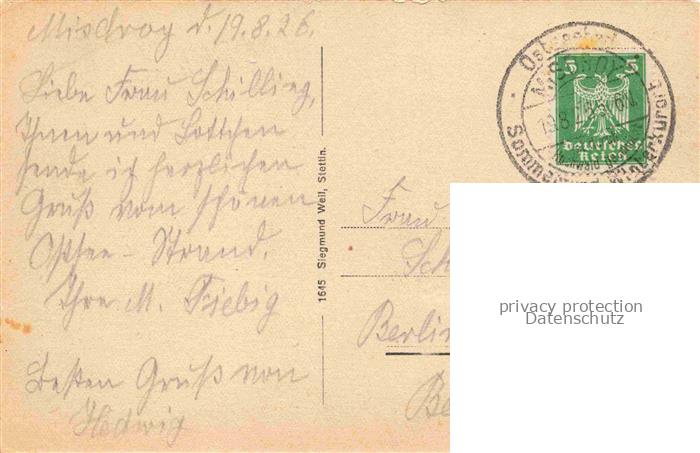 Misdroy d. 19.8.26.
Liebe Frau Schilling,
Ihnen und Lottchen
sende ich herzlichen
Gruß vom schönen
Ostsee-Strand.
Ihre M. Fiebig
Besten Gruß von
Hedwig
1645 Siegmund Weil, Stettin.
Ostseebad
MISDROY
19.8
Sommer- und Winterkurort
5 5
Deutsches
Reich
Frau
Sch
Berlin
Be
privacy protection
Datenschutz